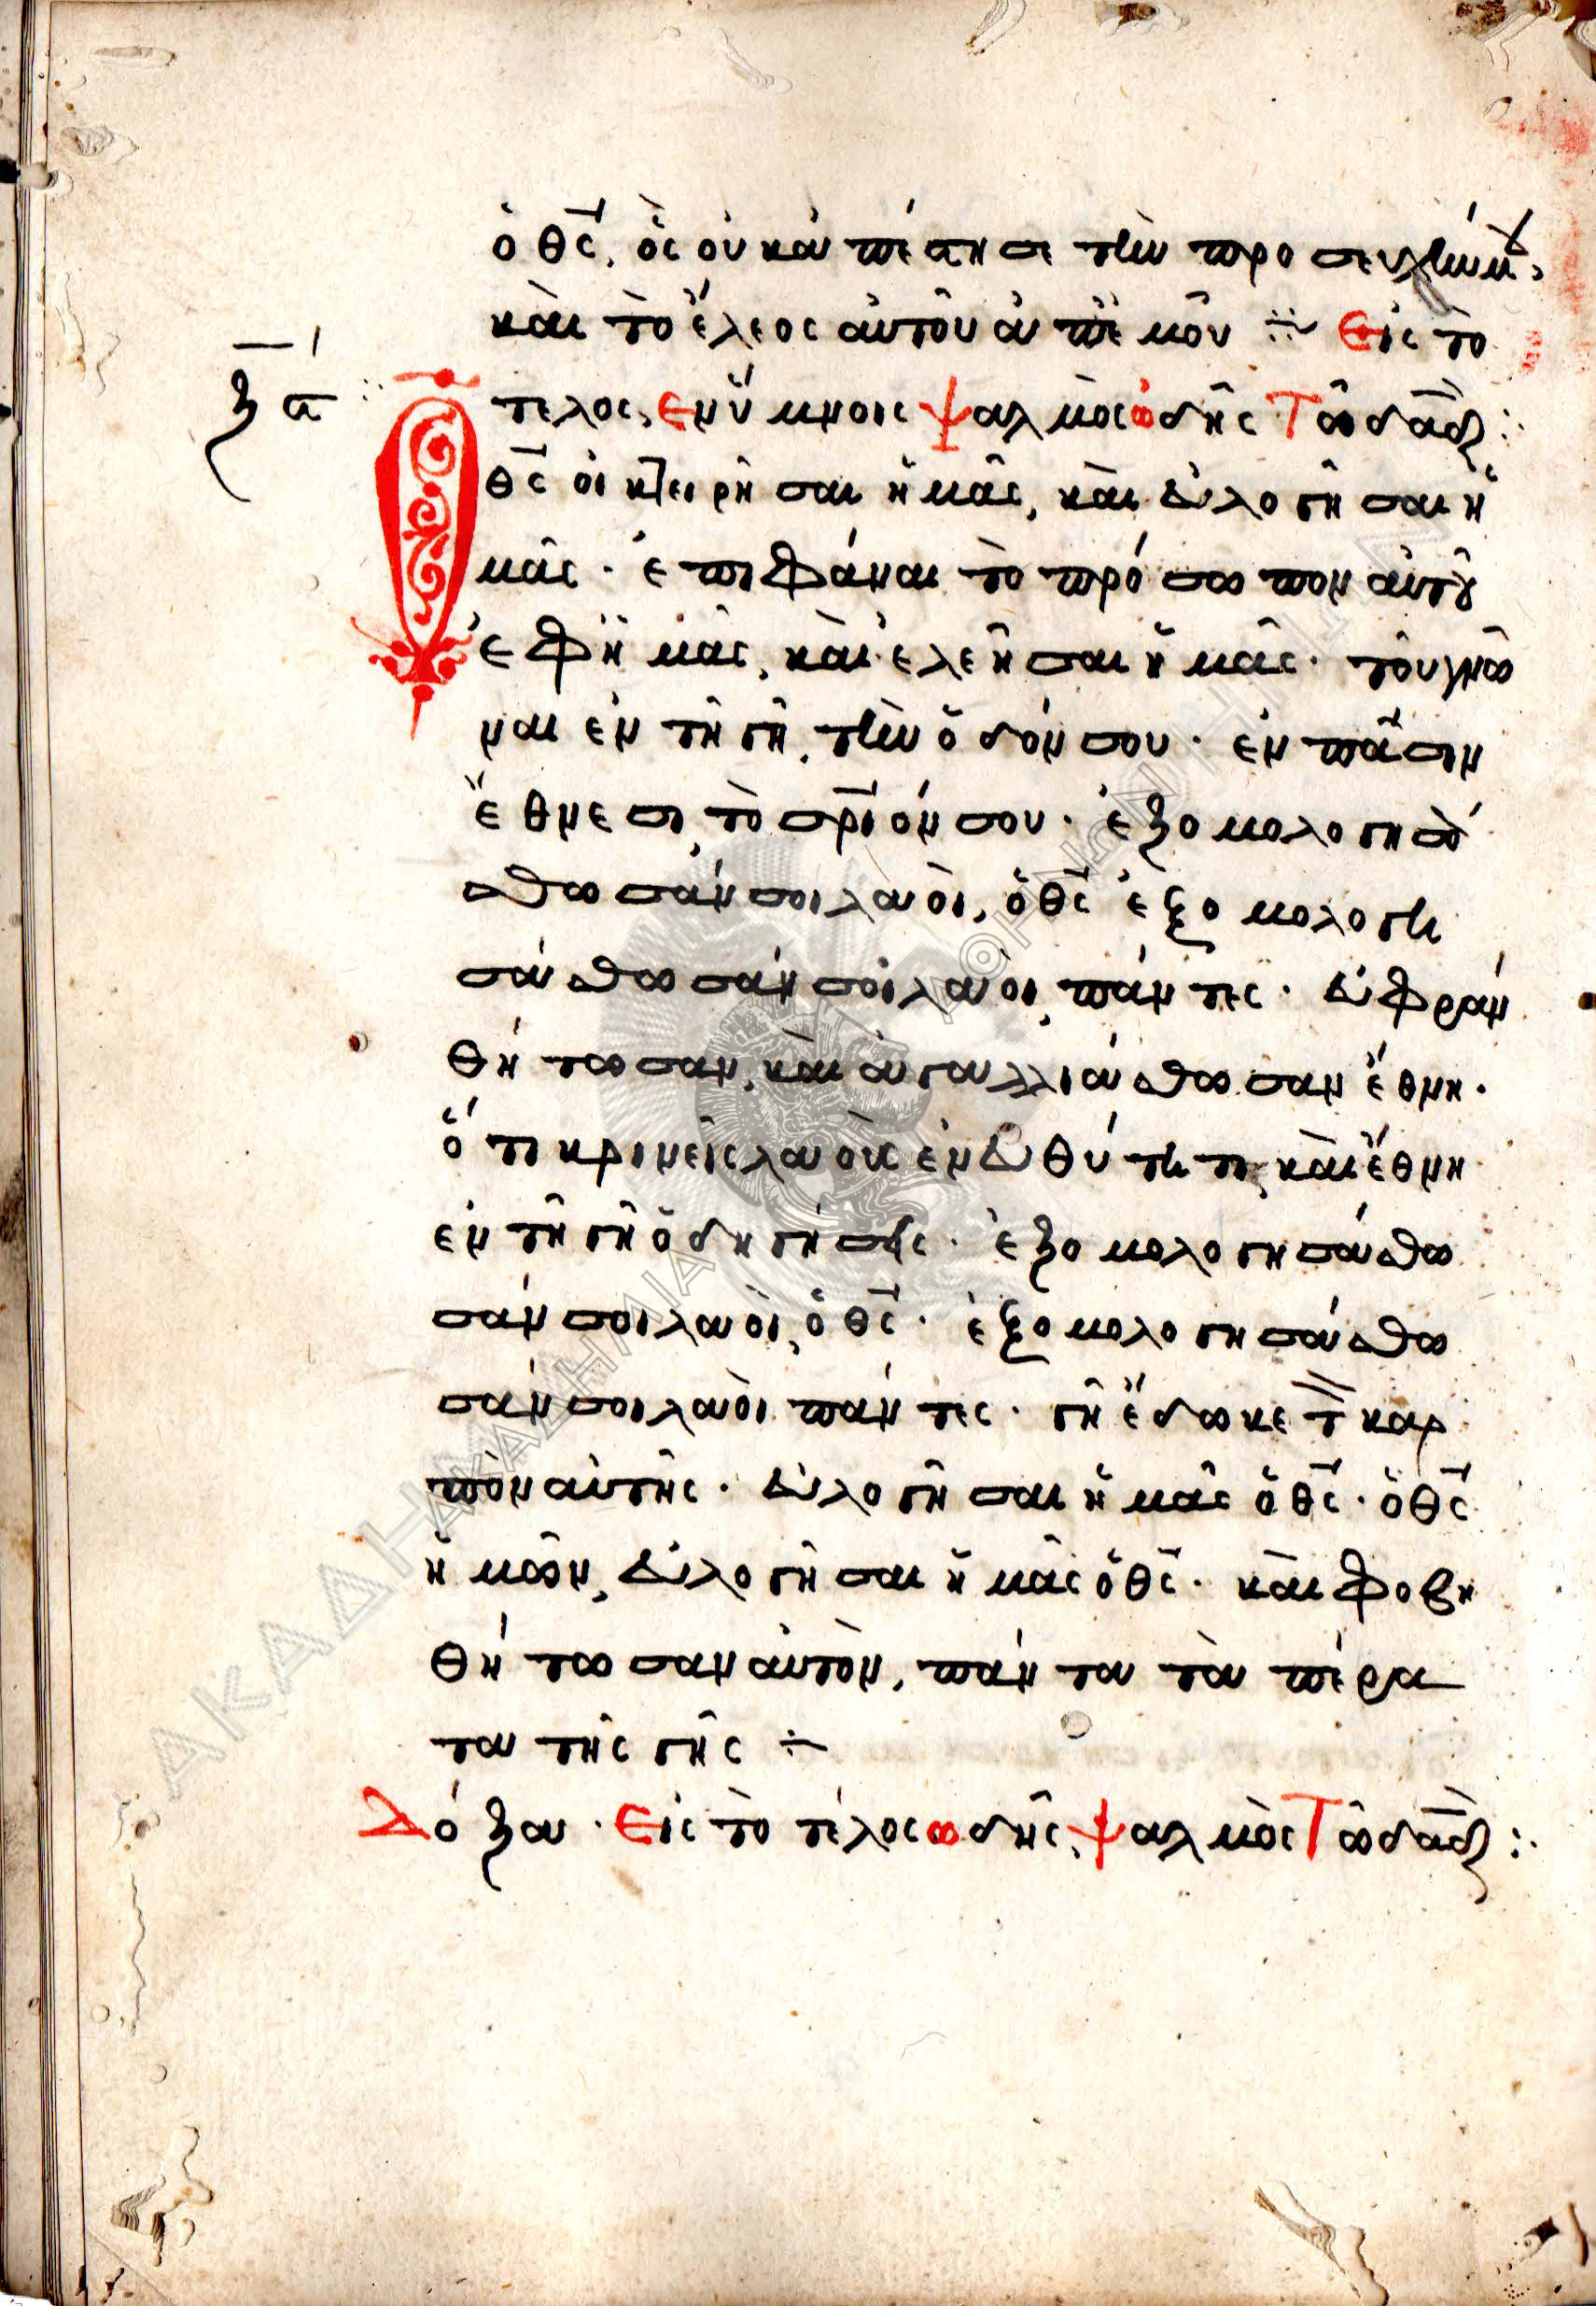 ὁ θς̅, ὃς οὐκ ἀπέστησε τὴν προσευχήν μ,
καὶ τὸ ἔλεος αὐτοῦ ἀπ ἐμοῦ ÷ Εἰς τὸ
ξ̅ς̅
τέλος, Εν ὕμνοις ψαλμὸς ὠδῆς Τῶ δα̅δ :
Ὁ θς̅ οἰκτειρῆσαι ἡμᾶς, καὶ εὐλογῆσαι ἡ
μᾶς · ἐπιφάναι τὸ πρόσωπον αὐτοῦ
ἐφ ἡμᾶς, καὶ ἐλεῆσαι ἡμᾶς · τοῦ γνῶ
ναι ἐν τῇ γῇ, τὴν ὁδόν σου · ἐν πᾶσιν
ἔθνεσι, τὸ σρ̅ιόν σου · ἐξομολογησά
σθωσάν σοι λαοὶ, ὁ θς̅ ἐξομολογη
σάσθωσάν σοι λαοὶ, πάντες · εὐφραν
θήτωσαν, καὶ ἀγαλλιάσθωσαν ἔθνη ·
ὅτι κρινεῖς λαοὺς ἐν εὐθύτητι, καὶ ἔθνη
ἐν τῇ γῇ ὁδηγήσεις · ἐξομολογησάσθω
σάν σοι λαοὶ, ὁ θς̅ · ἐξομολογησάσθω
σάν σοι λαοὶ πάντες · γῆ ἔδωκε τ̅ καρ
πὸν αὐτῆς · εὐλογῆσαι ἡμᾶς ὁ θς̅ · ὁ θς̅
ἡμῶν, εὐλογῆσαι ἡμᾶς ὁ θς̅ · καὶ φοβη
θήτωσαν αὐτὸν, πάντα τὰ πέρα
τα τῆς γῆς ÷
Δόξα · Εἰς τὸ τέλος ὠδῆς, ψαλμὸς Τῶ δα̅δ :
ΑΚΑΔΗΜΙΑ ΑΘΗΝΩΝ